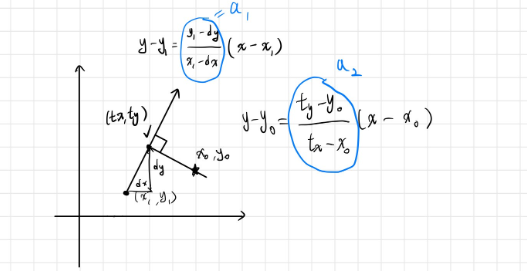 = a₁
y-y₁ = (y₁-dy)/(x₁-dx) (x-x₁)
a₂
y-y₀ = (ty-y₀)/(tx-x₀) (x-x₀)
(tx,ty)
x₀,y₀
dy
dx
(x₁,y₁)